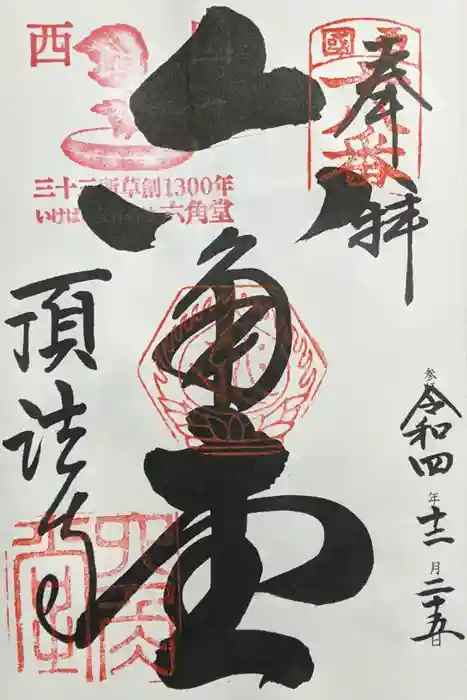 奉拝
西國十八番
六角堂
西国
三十三所草創1300年
いけばな発祥の地 六角堂
頂法寺
六角堂
令和四年十二月二十五日